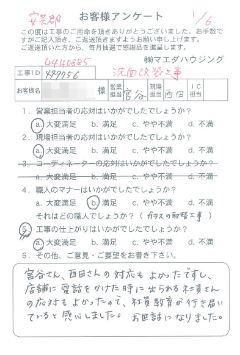 安芸郡
お客様アンケート
1/6
この度は工事のご用命を頂きありがとうございました。お手数で
すがご記入頂き、ご返送頂きますようお願い申し上げます。
ご返送頂いた方から、毎月抽選で感謝品を進呈します。
㈱マエダハウジング
工事ID
洗面改装工事
お客様名
様
営業担当
宮谷
現場担当
西田
IC担当
1. 営業担当者の応対はいかがでしたでしょうか?
a. 大変満足 b. 満足 c. やや不満 d. 不満
2. 現場担当者の応対はいかがでしたでしょうか?
a. 大変満足 b. 満足 c. やや不満 d. 不満
3. コーディネーターの応対はいかがでしたでしょうか?
a. 大変満足 b. 満足 c. やや不満 d. 不満
4. 職人のマナーはいかがでしたでしょうか?
a. 大変満足 b. 満足 c. やや不満 d. 不満
それはどの職人でしょうか?
5. 工事の仕上がりはいかがでしたでしょうか?
a. 大変満足 b. 満足 c. やや不満 d. 不満
6. その他、ご意見・ご要望をお書き下さい。
宮谷さん、西田さんの対応もよかったですし、
店舗に電話をかけた時に出られる社員さん
の応対もよかったので、社員教育が行き届い
ていると感心しました。お世話になりました。